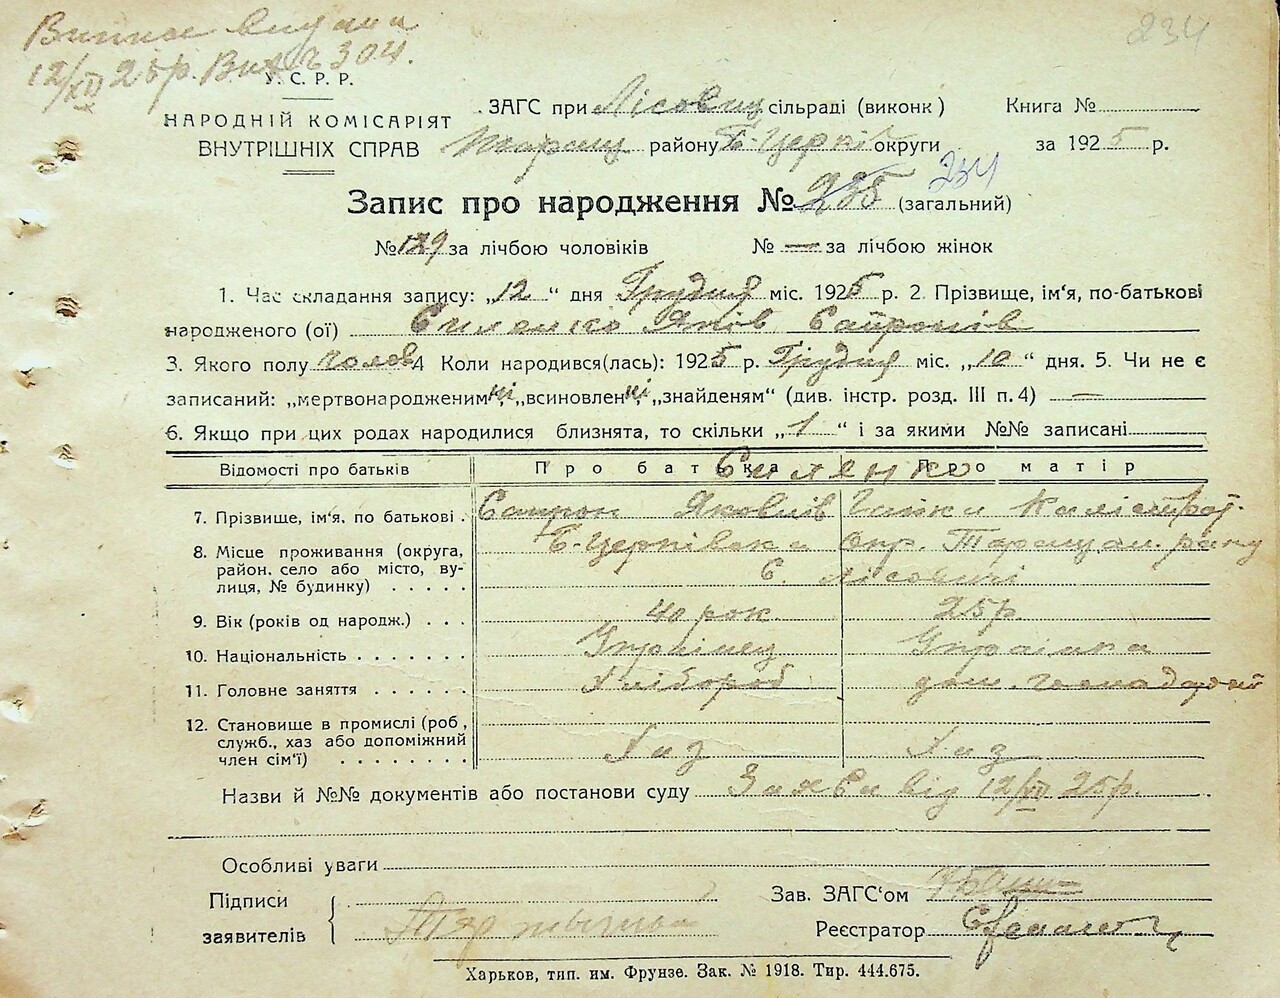 Виписи видана
12/XII 25р. Вих. № 304.
234
У.С.Р.Р.
НАРОДНІЙ КОМІСАРІЯТ
ВНУТРІШНІХ СПРАВ
ЗАГС при Лісовиц сільраді (виконк)
Книга №
Таращ району Б-Церків округи
за 1925 р.
Запис про народження № 235 234 (загальний)
№ 129 за лічбою чоловіків № — за лічбою жінок
1. Час складання запису: „12“ дня Грудня міс. 1925 р. 2. Прізвище, ім'я, по-батькові
народженого (ої) Силенко Яків Сапронів
3. Якого полу чолов 4 Коли народився(лась): 1925 р. Грудня міс. „10“ дня. 5. Чи не є
записаний: „мертвонародженим ні „всиновлен ні „знайденям“ (див. інстр. розд. III п. 4) —
6. Якщо при цих родах народилися близнята, то скільки „1“ і за якими №№ записані
Відомості про батьків
Про батька
Про матір
Силенко
7. Прізвище, ім'я, по батькові .
Сапрон Яковлів
Ганна Калістрат.
8. Місце проживання (округа,
район, село або місто, ву-
лиця, № будинку) . . . . .
Б-Церківська Окр. Таращан. рану
С. Лісовичі
9. Вік (років од народж.) . . .
40 рок.
25р.
10. Національність . . . . . . .
Українец
Українка
11. Головне заняття . . . . . .
Хлібороб
дом.
12. Становище в промислі (роб,
служб., хаз або допоміжний
член сім'ї) . . . . . . . .
Хаз
Хаз
Назви й №№ документів або постанови суду Заява від 12/XII 25р.
Особливі уваги
Підписи
заявителів
Зав. ЗАГС'ом
Реєстратор
Харьков, тип. им. Фрунзе. Зак. № 1918. Тир. 444.675.